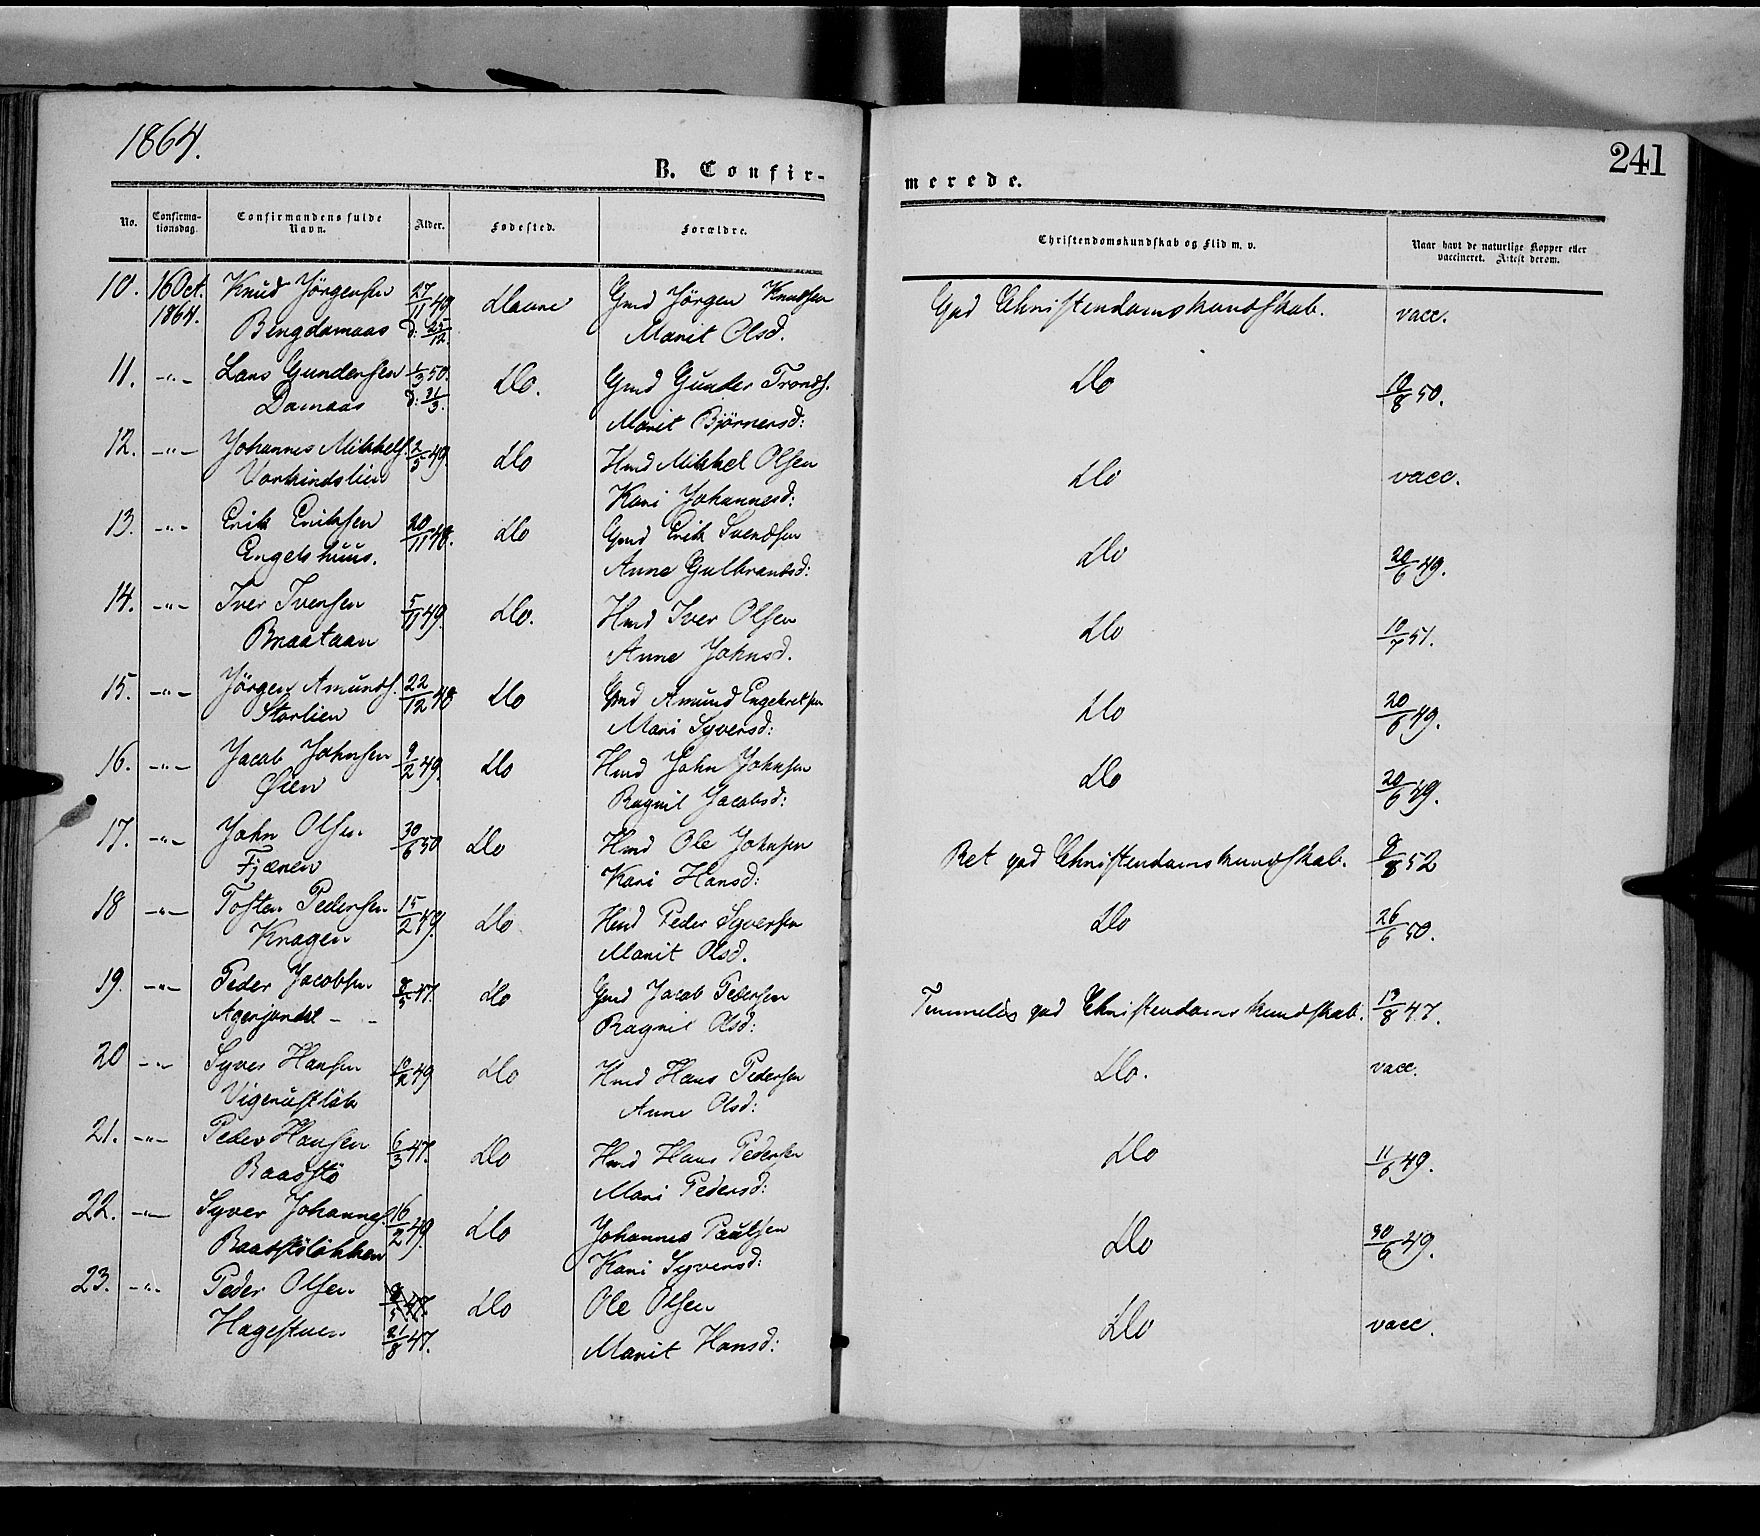 1864.
241
B. Confir-
merede.
No.
Confirma-
tionsdag.
Confirmandens fulde
Navn.
Alder.
Fødested.
Forældre.
Christendomskundskab og Flid m. v.
Naar havt de naturlige Kopper eller
vaccineret. Attest derom.
10. 16 Oct. Knud Jörgensen 27/11 49 Gmd Jörgen Knudsen God Christendomskundskab. vacc.
1864. d: 25/12 Marit Olsd.
11. -"- Lars Gundersen 1/3 50. Do. Gmd Gunder Tronds. Do 10/8 50.
Damaas d: 31/3. Marit Björnersd:
12. -"- Johannes Mikkels. 2/5 49. Do Hmd Mikkel Olsen Do vacc.
Kari Johannesd:
13. -"- Erik Eriksen 20/11 48. Do Gmd Erik Svendsen Do 20/6 49.
Engelshuus. Anne Gulbrandsd:
14. -"- Iver Iversen 5/11 49. Do. Hmd Iver Olsen Do 10/7 51.
Braataan Anne Johnsd.
15. -"- Jörgen Amunds. 22/12 48 Do Gmd Amund Engebretsen Do 20/6 49.
Storlien Mari Syversd:
16. -"- Jacob Johnsen 9/2 49. Do Hmd John Johnsen Do 20/6 49.
Öien Ragnil Jacobsd:
17. -"- John Olsen 30/6 50 Do Hmd Ole Johnsen Ret god Christendomskundskab. 9/8 52
Fjænen Kari Hansd:
18 -"- Tosten Pedersen 15/2 49. Do Hmd Peder Syversen Do 26/6 50.
Kragen Marit Olsd.
19. -"- Peder Jacobsen 8/5 47. Do Gmd Jacob Pedersen Temmelig god Christendomskundskab. 19/8 47.
Agerjordet - - Ragnil Olsd:
20 -"- Syver Hansen 49 Do Hmd Hans Pedersen Do. vacc.
Anne Olsd:
21. -"- Peder Hansen 6/3 47. Do Hmd Hans Pedersen Do 11/6 49.
Baadstö Mari Pedersd:
22. -"- Syver Johannes. 16/2 49. Do Johannes Paulsen Do 30/6 49.
Baadstölökken Kari Syversd:
23. -"- Peder Olsen Do Ole Olsen Do vacc.
Hagestuen 21/8 47. Marit Hansd: